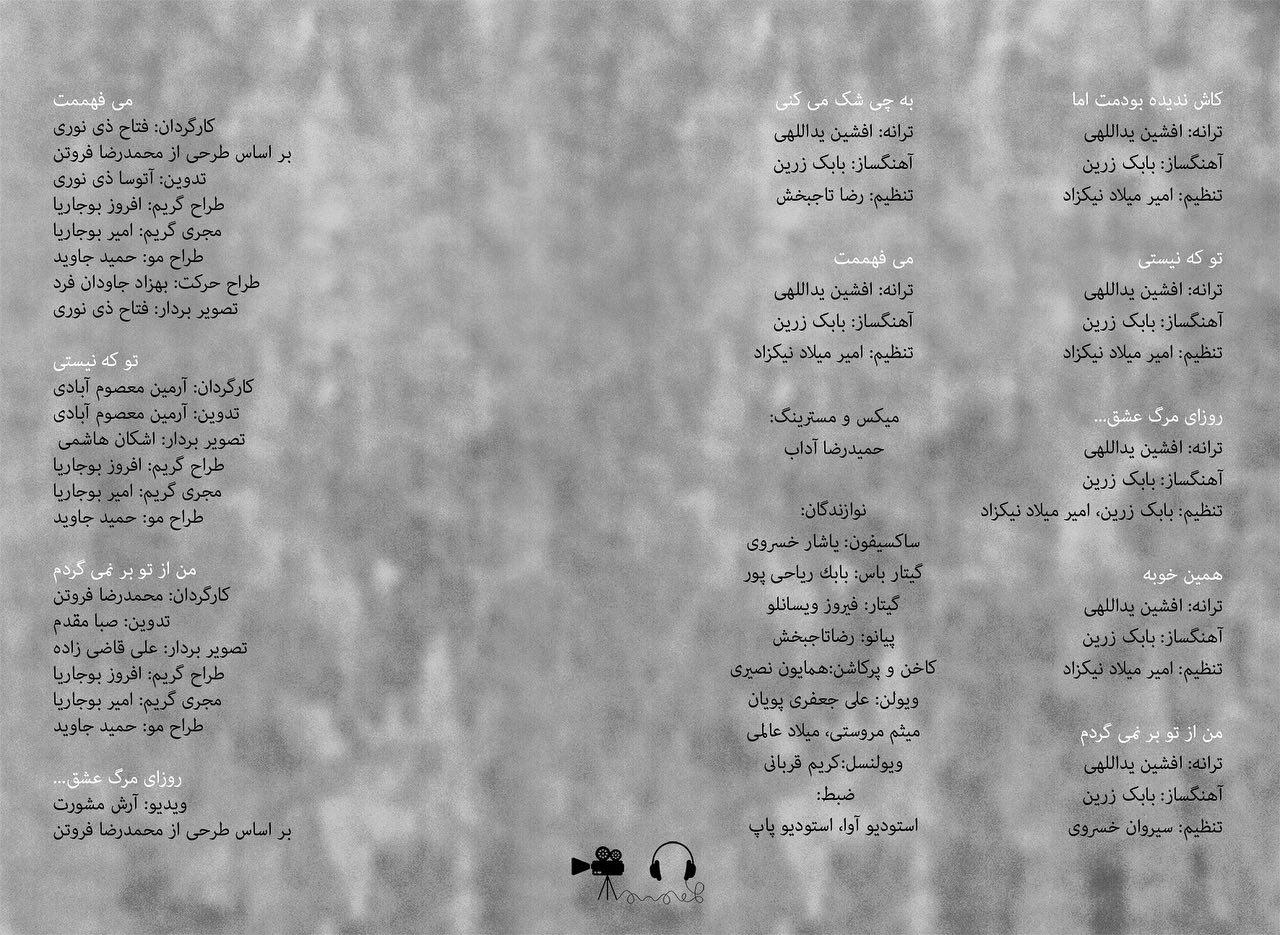 کاش ندیده بودمت اما
ترانه: افشین یداللهی
آهنگساز: بابک زرین
تنظیم: امیر میلاد نیکزاد
تو که نیستی
ترانه: افشین یداللهی
آهنگساز: بابک زرین
تنظیم: امیر میلاد نیکزاد
روزای مرگ عشق...
ترانه: افشین یداللهی
آهنگساز: بابک زرین
تنظیم: بابک زرین، امیر میلاد نیکزاد
همین خوبه
ترانه: افشین یداللهی
آهنگساز: بابک زرین
تنظیم: امیر میلاد نیکزاد
من از تو بر نمی گردم
ترانه: افشین یداللهی
آهنگساز: بابک زرین
تنظیم: سیروان خسروی
به چی شک می کنی
ترانه: افشین یداللهی
آهنگساز: بابک زرین
تنظیم: رضا تاجبخش
می فهممت
ترانه: افشین یداللهی
آهنگساز: بابک زرین
تنظیم: امیر میلاد نیکزاد
میکس و مسترینگ:
حمیدرضا آداب
نوازندگان:
ساکسیفون: یاشار خسروی
گیتار باس: بابك ریاحی پور
گیتار: فیروز ویسانلو
پیانو: رضاتاجبخش
کاخن و پرکاشن:همایون نصیری
ویولن: علی جعفری پویان
میثم مروستی، میلاد عالمی
ویولنسل:کریم قربانی
ضبط:
استودیو آوا، استودیو پاپ
می فهممت
کارگردان: فتاح ذی نوری
بر اساس طرحی از محمدرضا فروتن
تدوین: آتوسا ذی نوری
طراح گریم: افروز بوجاریا
مجری گریم: امیر بوجاریا
طراح مو: حمید جاوید
طراح حرکت: بهزاد جاودان فرد
تصویر بردار: فتاح ذی نوری
تو که نیستی
کارگردان: آرمین معصوم آبادی
تدوین: آرمین معصوم آبادی
تصویر بردار: اشکان هاشمی
طراح گریم: افروز بوجاریا
مجری گریم: امیر بوجاریا
طراح مو: حمید جاوید
من از تو بر نمی گردم
کارگردان: محمدرضا فروتن
تدوین: صبا مقدم
تصویر بردار: علی قاضی زاده
طراح گریم: افروز بوجاریا
مجری گریم: امیر بوجاریا
طراح مو: حمید جاوید
روزای مرگ عشق...
ویدیو: آرش مشورت
بر اساس طرحی از محمدرضا فروتن